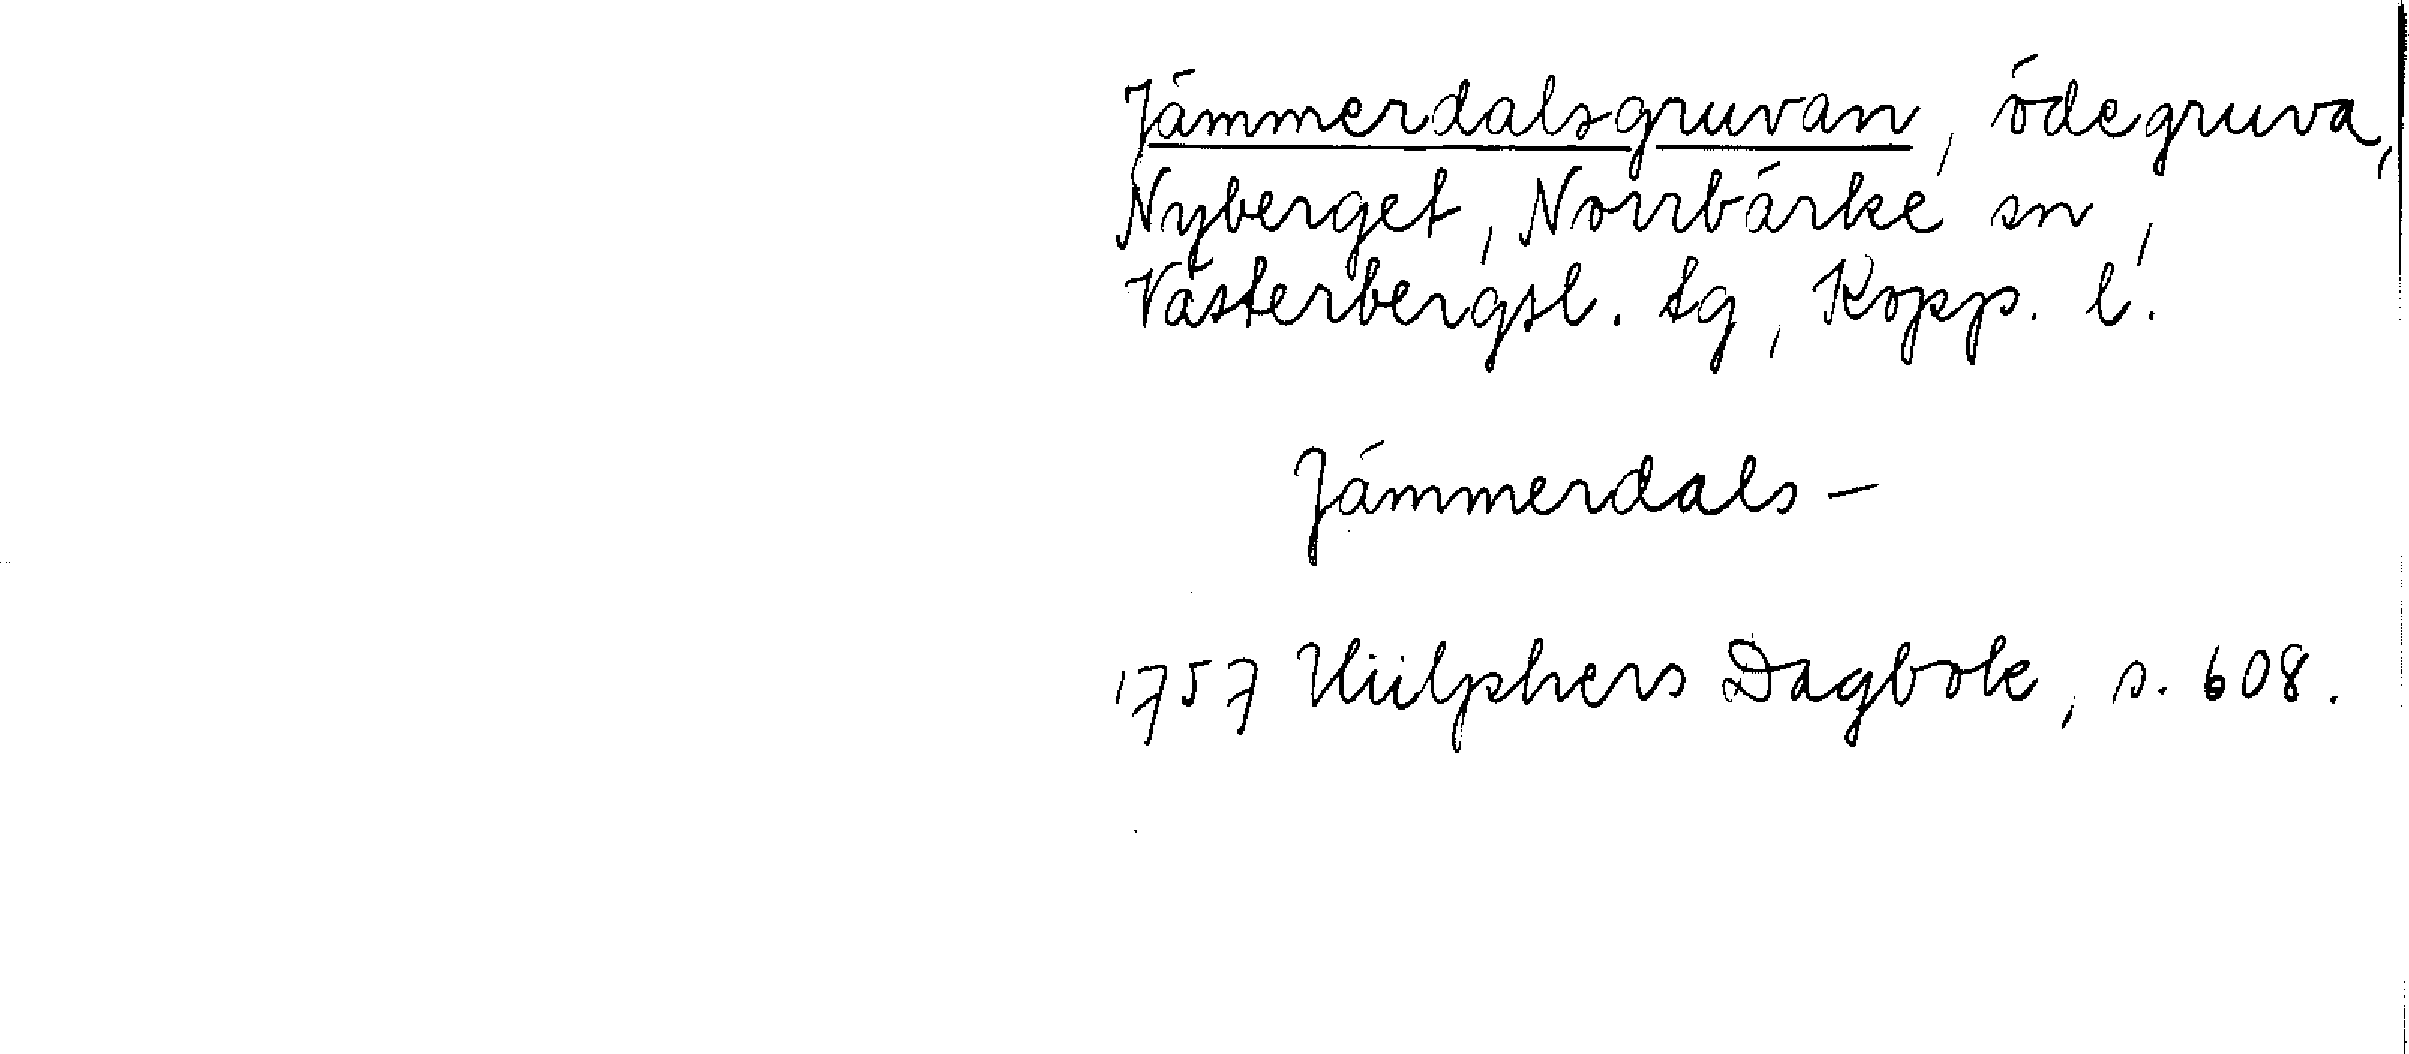 Jämmerdalsgruvan, ödegruva,
Nyberget, Norrbärke sn,
Västerbergsl. tg, Kopp. l.
Jämmerdals –
1757 Hülphers Dagbok, s. 608.